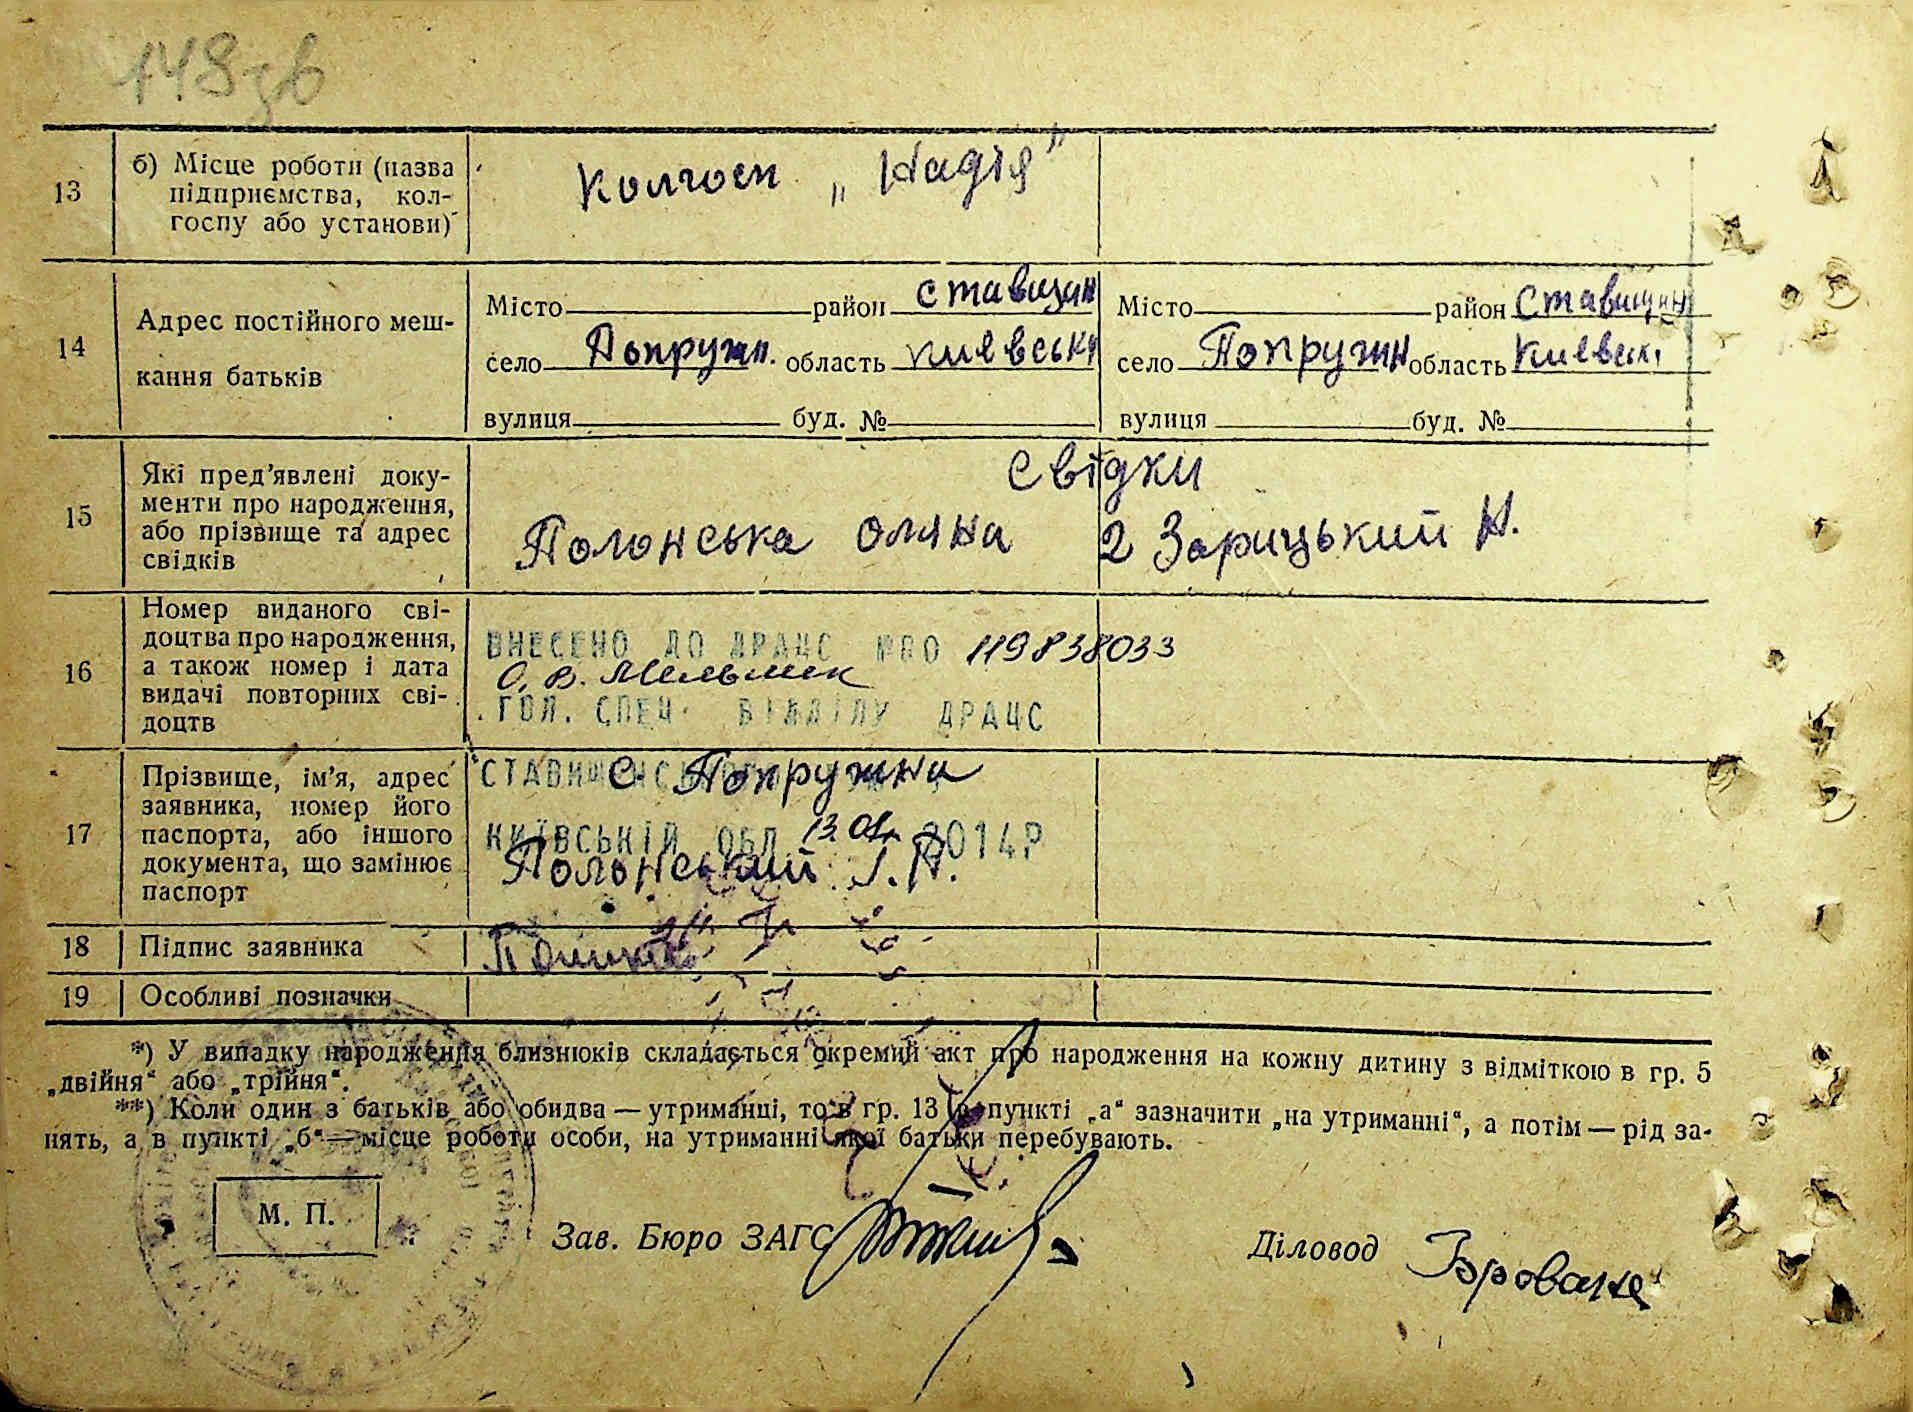 148зв
13
б) Місце роботи (назва
підприємства, кол-
госпу або установи)
Колгосп „Надія"
14
Адрес постійного меш-
кання батьків
Місто район Ставищан
село Попружн. область Киевськи
вулиця буд. №
Місто район Ставищан
село Попружн область Киевськ.
вулиця буд. №
15
Які пред'явлені доку-
менти про народження,
або прізвище та адрес
свідків
Свідки
Полонська Оляна 2 Зарицький Н.
16
Номер виданого сві-
доцтва про народження,
а також номер і дата
видачі повторних сві-
доцтв
ВНЕСЕНО ДО ДРАЦС №00 119838033
О. В. Мельник
ГОЛ. СПЕЦ. ВІДДІЛУ ДРАЦС
17
Прізвище, ім'я, адрес
заявника, номер його
паспорта, або іншого
документа, що замінює
паспорт
СТАВИЩЕНСЬКОГО
С Попружна
КИЇВСЬКІЙ ОБЛ 13.01. 2014Р
Полонський І. П.
18
Підпис заявника
19
Особливі позначки
*) У випадку народження близнюків складається окремий акт про народження на кожну дитину з відміткою в гр. 5
„двійня" або „трійня".
**) Коли один з батьків або обидва — утриманці, то в гр. 13 в пункті „а" зазначити „на утриманні", а потім — рід за-
нять, а в пункті „б" — місце роботи особи, на утриманні якої батьки перебувають.
М. П.
Зав. Бюро ЗАГС
Діловод